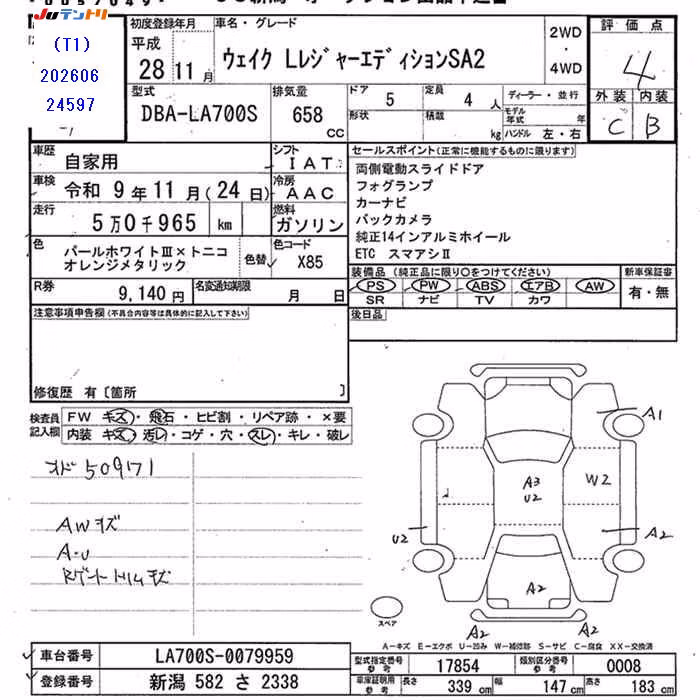 Juテントリ
(T1)
202606
24597
初度登録年月
平成
28 11 月
車名・グレード
ウェイク LレジャーエディションSA2
2WD
・
4WD
評価点
4
外装 内装
C B
型式
DBA-LA700S
排気量
658
CC
ドア
5
形状
定員
4 人
積載
kg
ディーラー・並行
モデル年式 年
ハンドル 左・右
車歴 自家用
シフト IAT
車検 令和 9 年 11 月(24 日)
冷房 AAC
走行 5万0千965 km
燃料 ガソリン
色 パールホワイトⅢ×トニコ
オレンジメタリック
色替
色コード X85
R券 9,140 円
名変通知期限 月 日
セールスポイント(正常に機能するものに限ります)
両側電動スライドドア
フォグランプ
カーナビ
バックカメラ
純正14インアルミホイール
ETC スマアシⅡ
装備品 (純正品に限り○をつけてください)
PS PW ABS エアB AW
SR ナビ TV カワ
新車保証書
有・無
後日品
注意事項申告欄(不具合内容等は具体的に記入して下さい)
修復歴 有〔箇所 〕
検査員
記入欄
FW キズ・飛石・ヒビ割・リペア跡・×要
内装 キズ・汚レ・コゲ・穴・スレ・キレ・破レ
オド 50971
AWキズ
A-U
Rゲートトリムキズ
A1
A3
U2
W2
U2
A2
A2
A2
A2
スペア
A-キズ E-エクボ U-凹み W-補修跡 S-サビ C-腐食 XX-交換済
車台番号 LA700S-0079959
登録番号 新潟 582 さ 2338
型式指定番号
参考
17854
類別区分番号
参考
0008
車庫証明用
参考
長さ 339 cm
幅 147 cm
高さ 183 cm